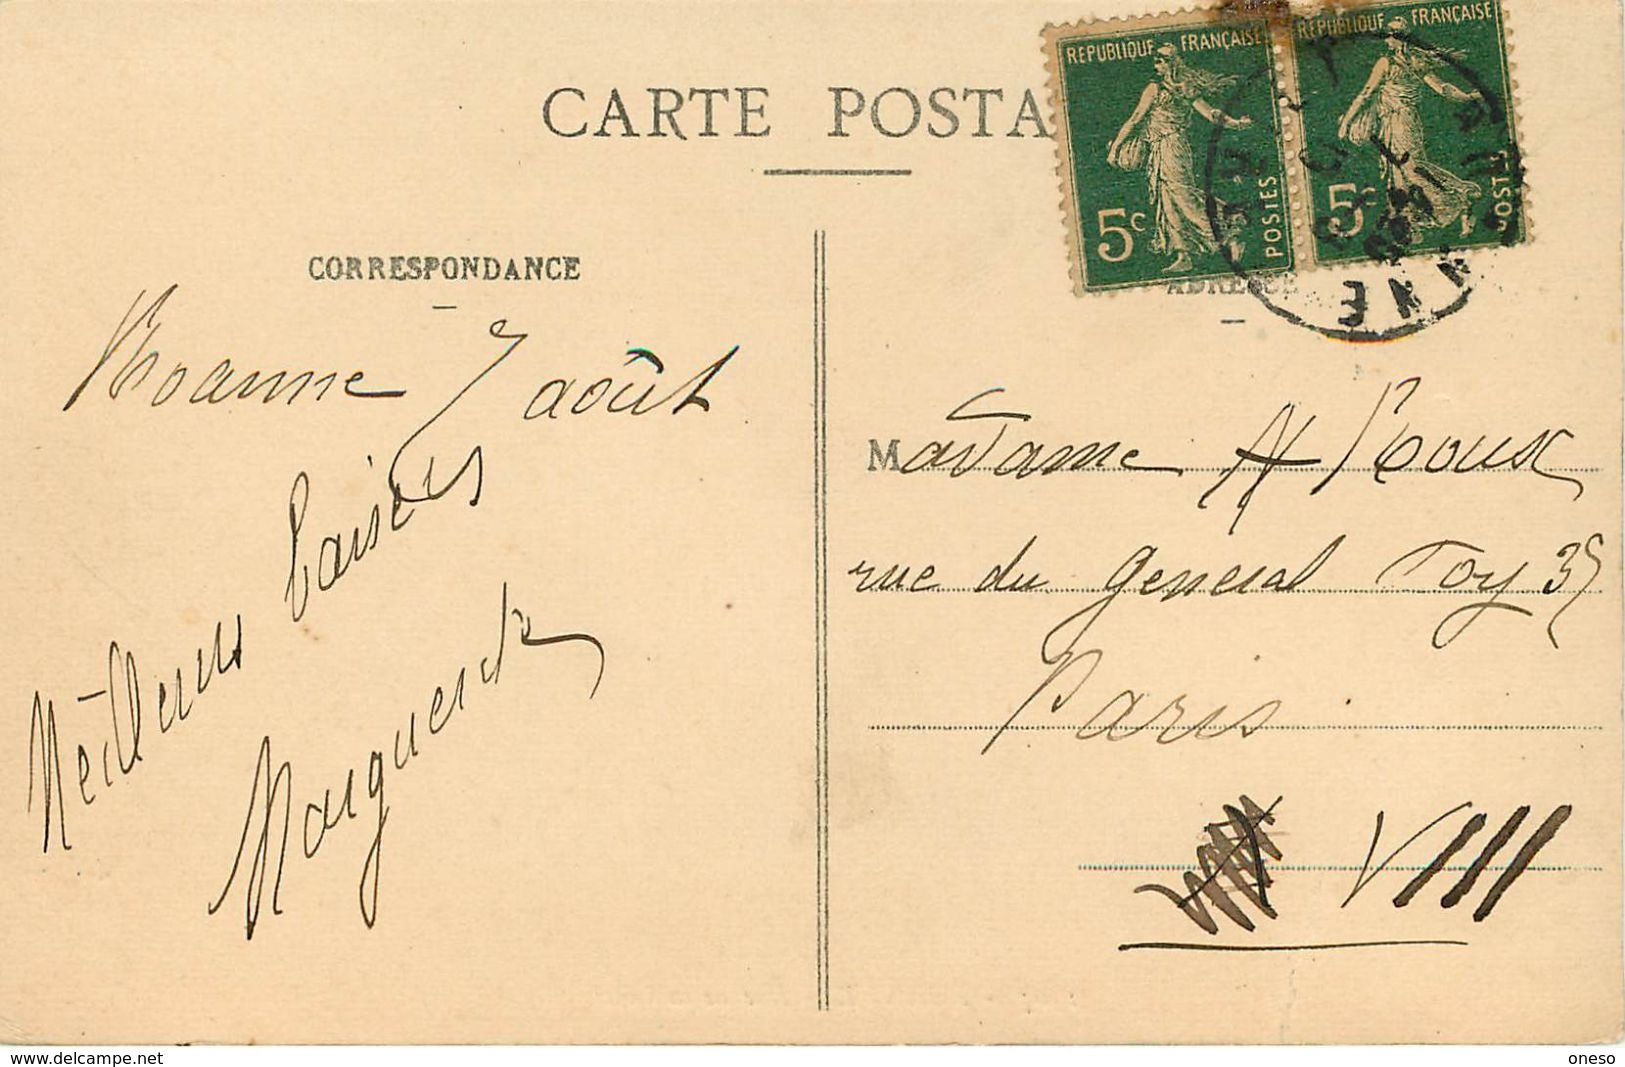 CARTE POSTA
REPUBLIQUE FRANÇAISE
5c
POSTES
REPUBLIQUE FRANÇAISE
5c
POSTES
CORRESPONDANCE
ADRESSE
Roanne 7 août
Meilleurs baisers
Marguerite
Madame A Roux
rue du General Foy 35
Paris
VIII
www.delcampe.net
oneso